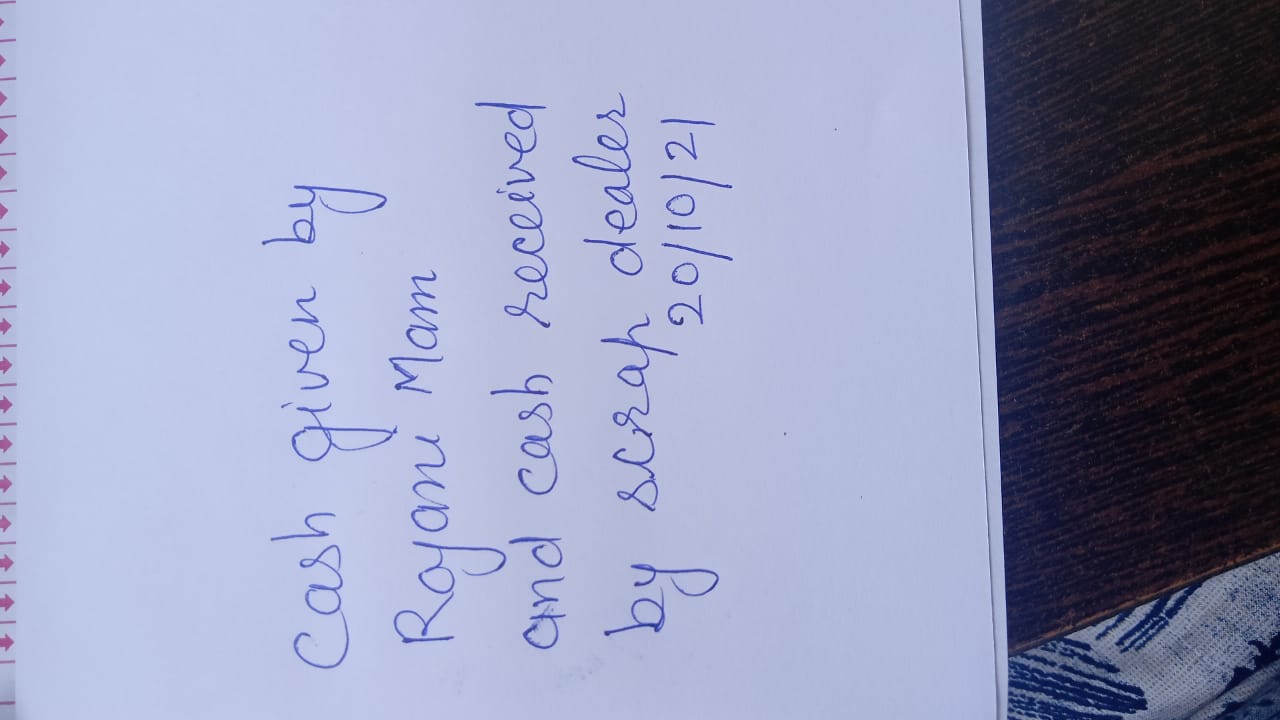 Cash given by
Royani Mam
and cash received
by scrap dealer
20/10/21